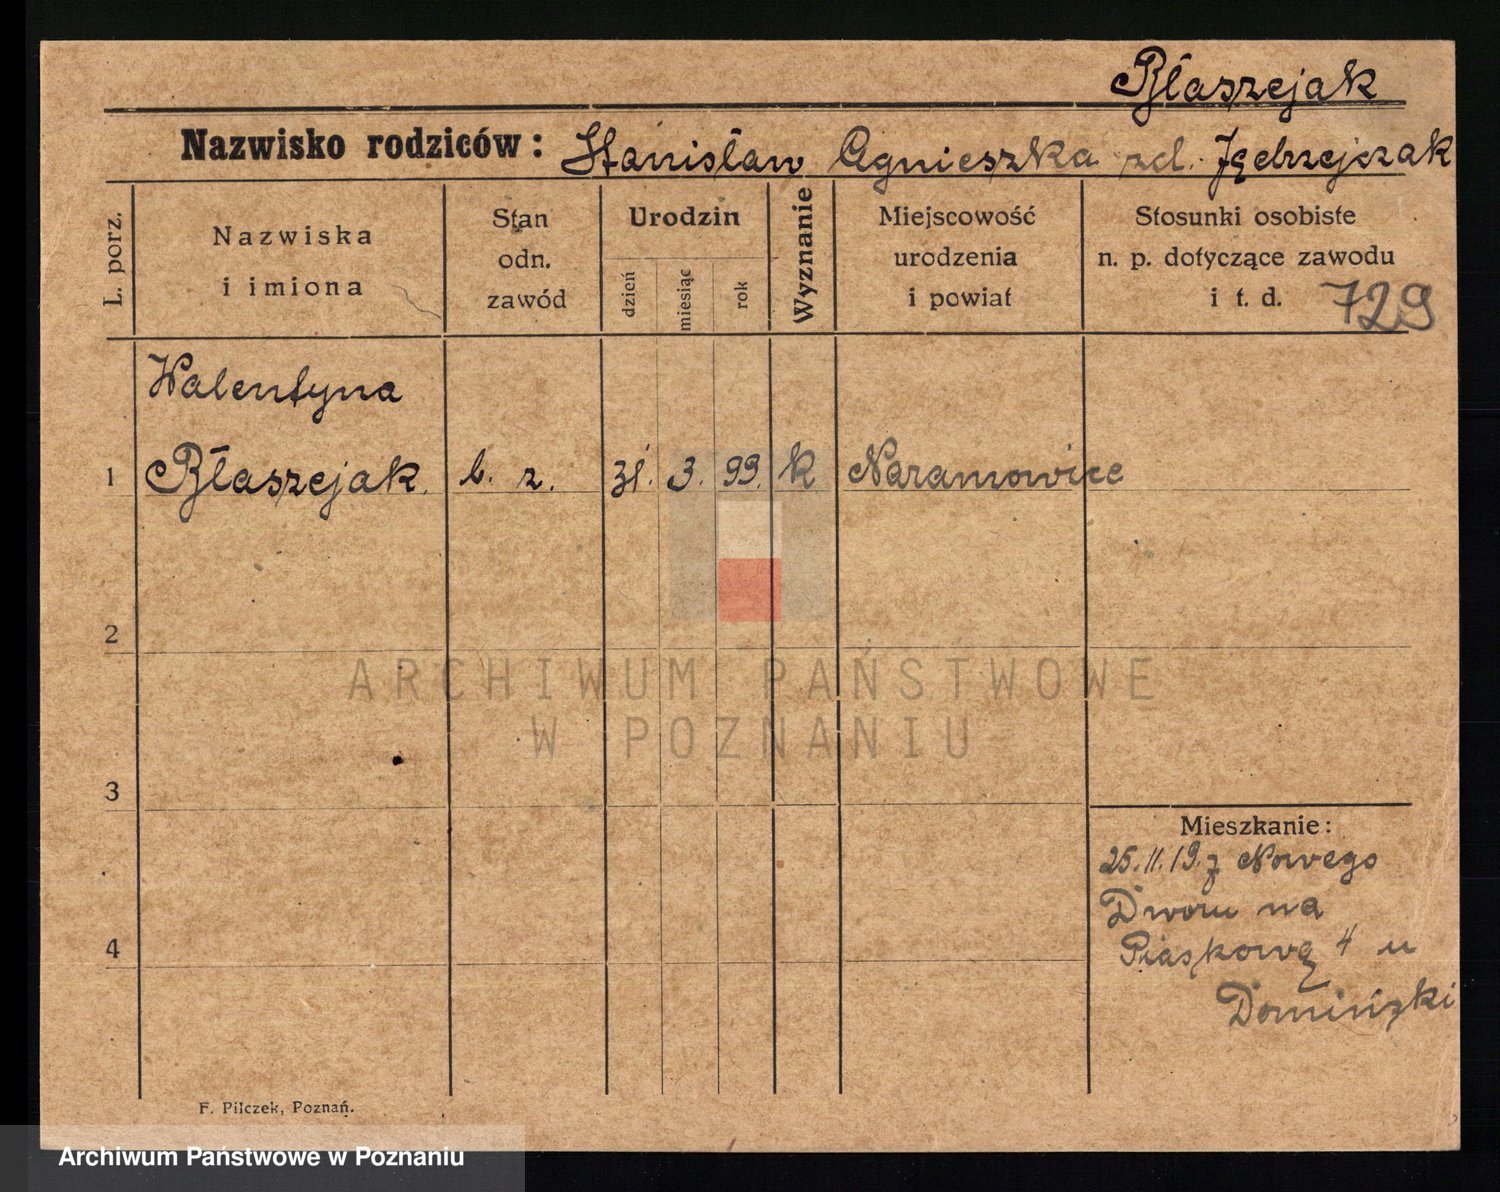 Błaszejak
Nazwisko rodziców: Stanisław Agnieszka zd. Jędrzejczak
L. porz.
Nazwiska
i imiona
Stan
odn.
zawód
Urodzin
dzień
miesiąc
rok
Wyznanie
Miejscowość
urodzenia
i powiat
Stosunki osobiste
n. p. dotyczące zawodu
i t. d. 729
Walentyna
1 Błaszejak b. z. 31. 3. 99. k Naramowice
2
ARCHIWUM PAŃSTWOWE
W POZNANIU
3
Mieszkanie:
25.11.19. z Nowego
Dworu na
4 Piaskową 4 u
Domińzki
F. Pilczek, Poznań.
Archiwum Państwowe w Poznaniu